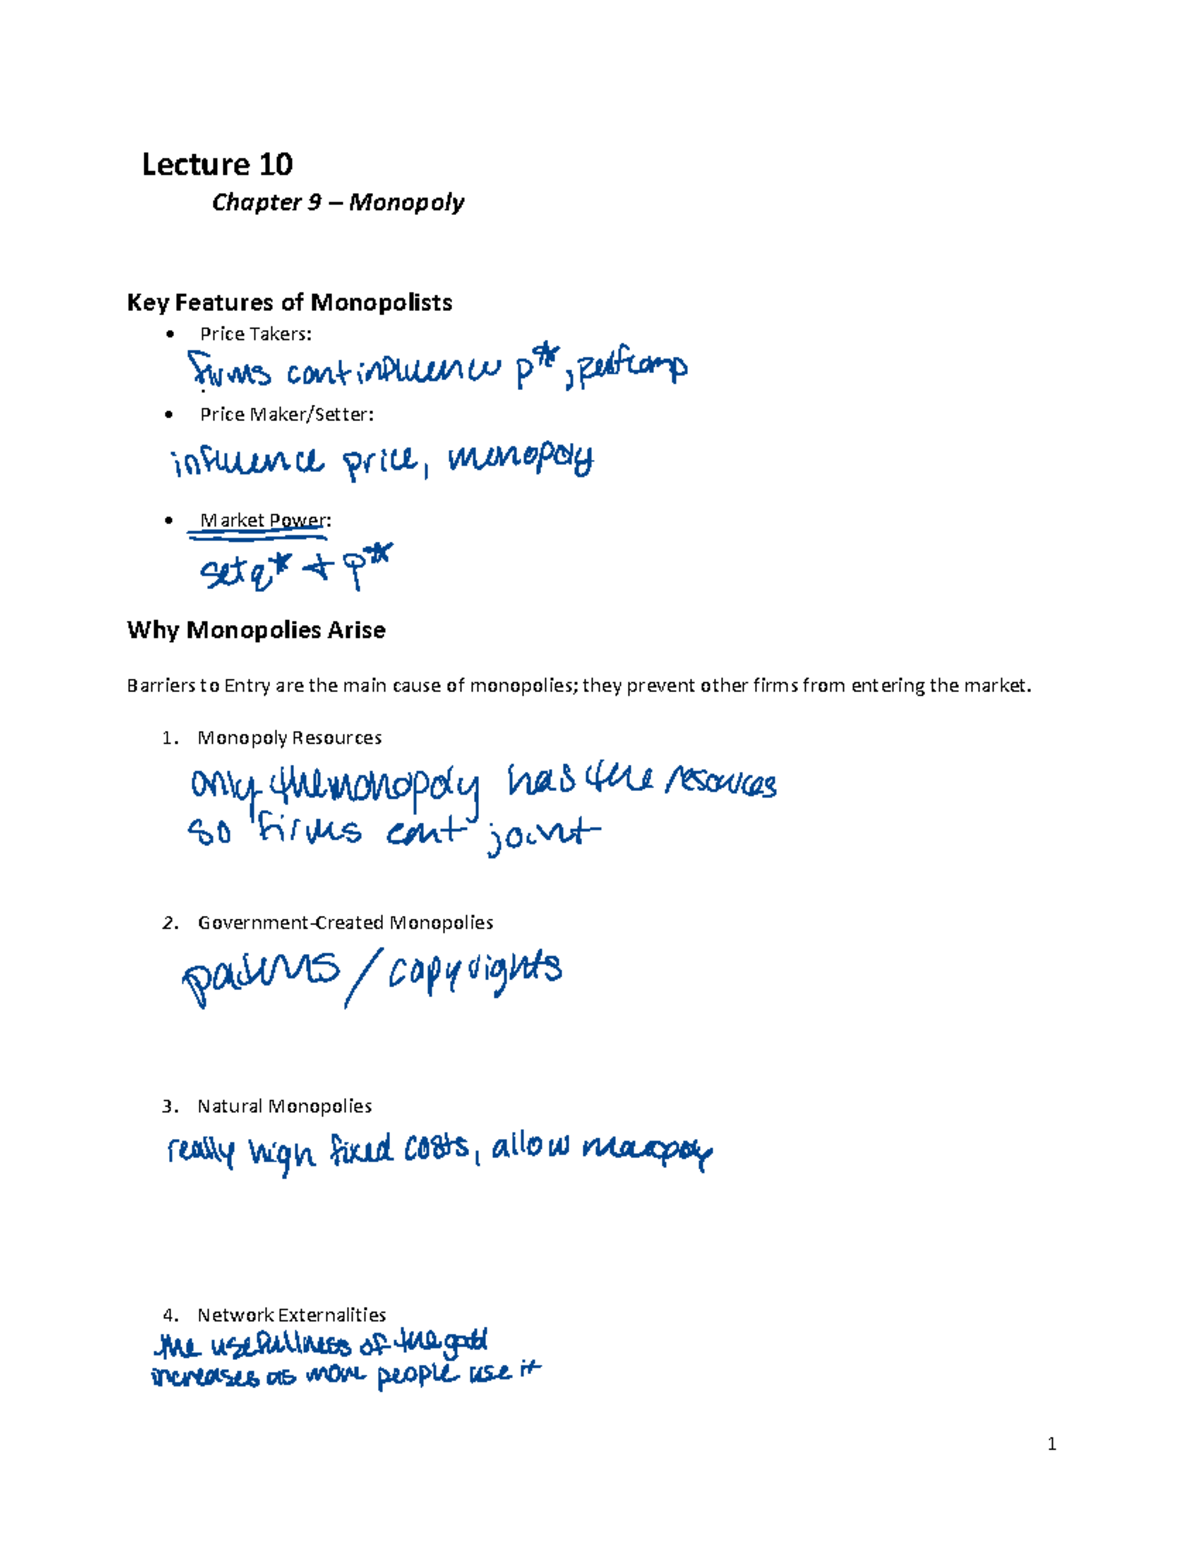 Lecture 10
Chapter 9 – Monopoly
Key Features of Monopolists
• Price Takers:
firms cant influence p*, perfcomp
• Price Maker/Setter:
influence price, monopoly
• Market Power:
set q* + p*
Why Monopolies Arise
Barriers to Entry are the main cause of monopolies; they prevent other firms from entering the market.
1. Monopoly Resources
only the monopoly has the resources
so firms cant joint
2. Government-Created Monopolies
patents / copyrights
3. Natural Monopolies
really high fixed costs, allow monopoly
4. Network Externalities
the usefullness of the good
increases as more people use it
1